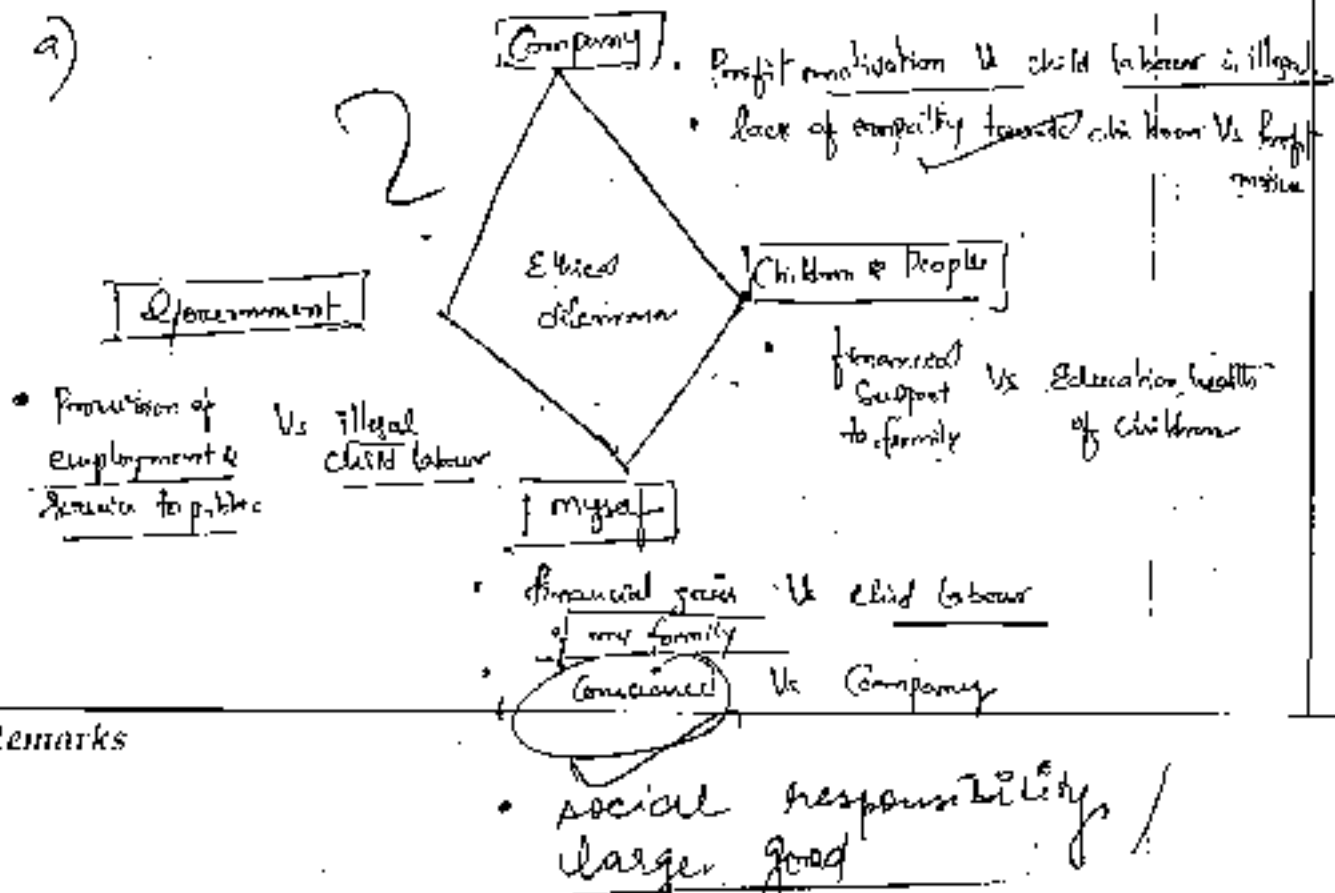 a)
Company
• Profit motivation Vs child labour is illegal
• lack of empathy towards children Vs profit motive
2
Ethical dilemma
Children & People
• financial support to family Vs Education, health of children
Government
• Provision of employment & service to public Vs illegal child labour
myself
• financial gain of my family Vs child labour
• Conscience Vs Company
Remarks
• social responsibility,
larger good